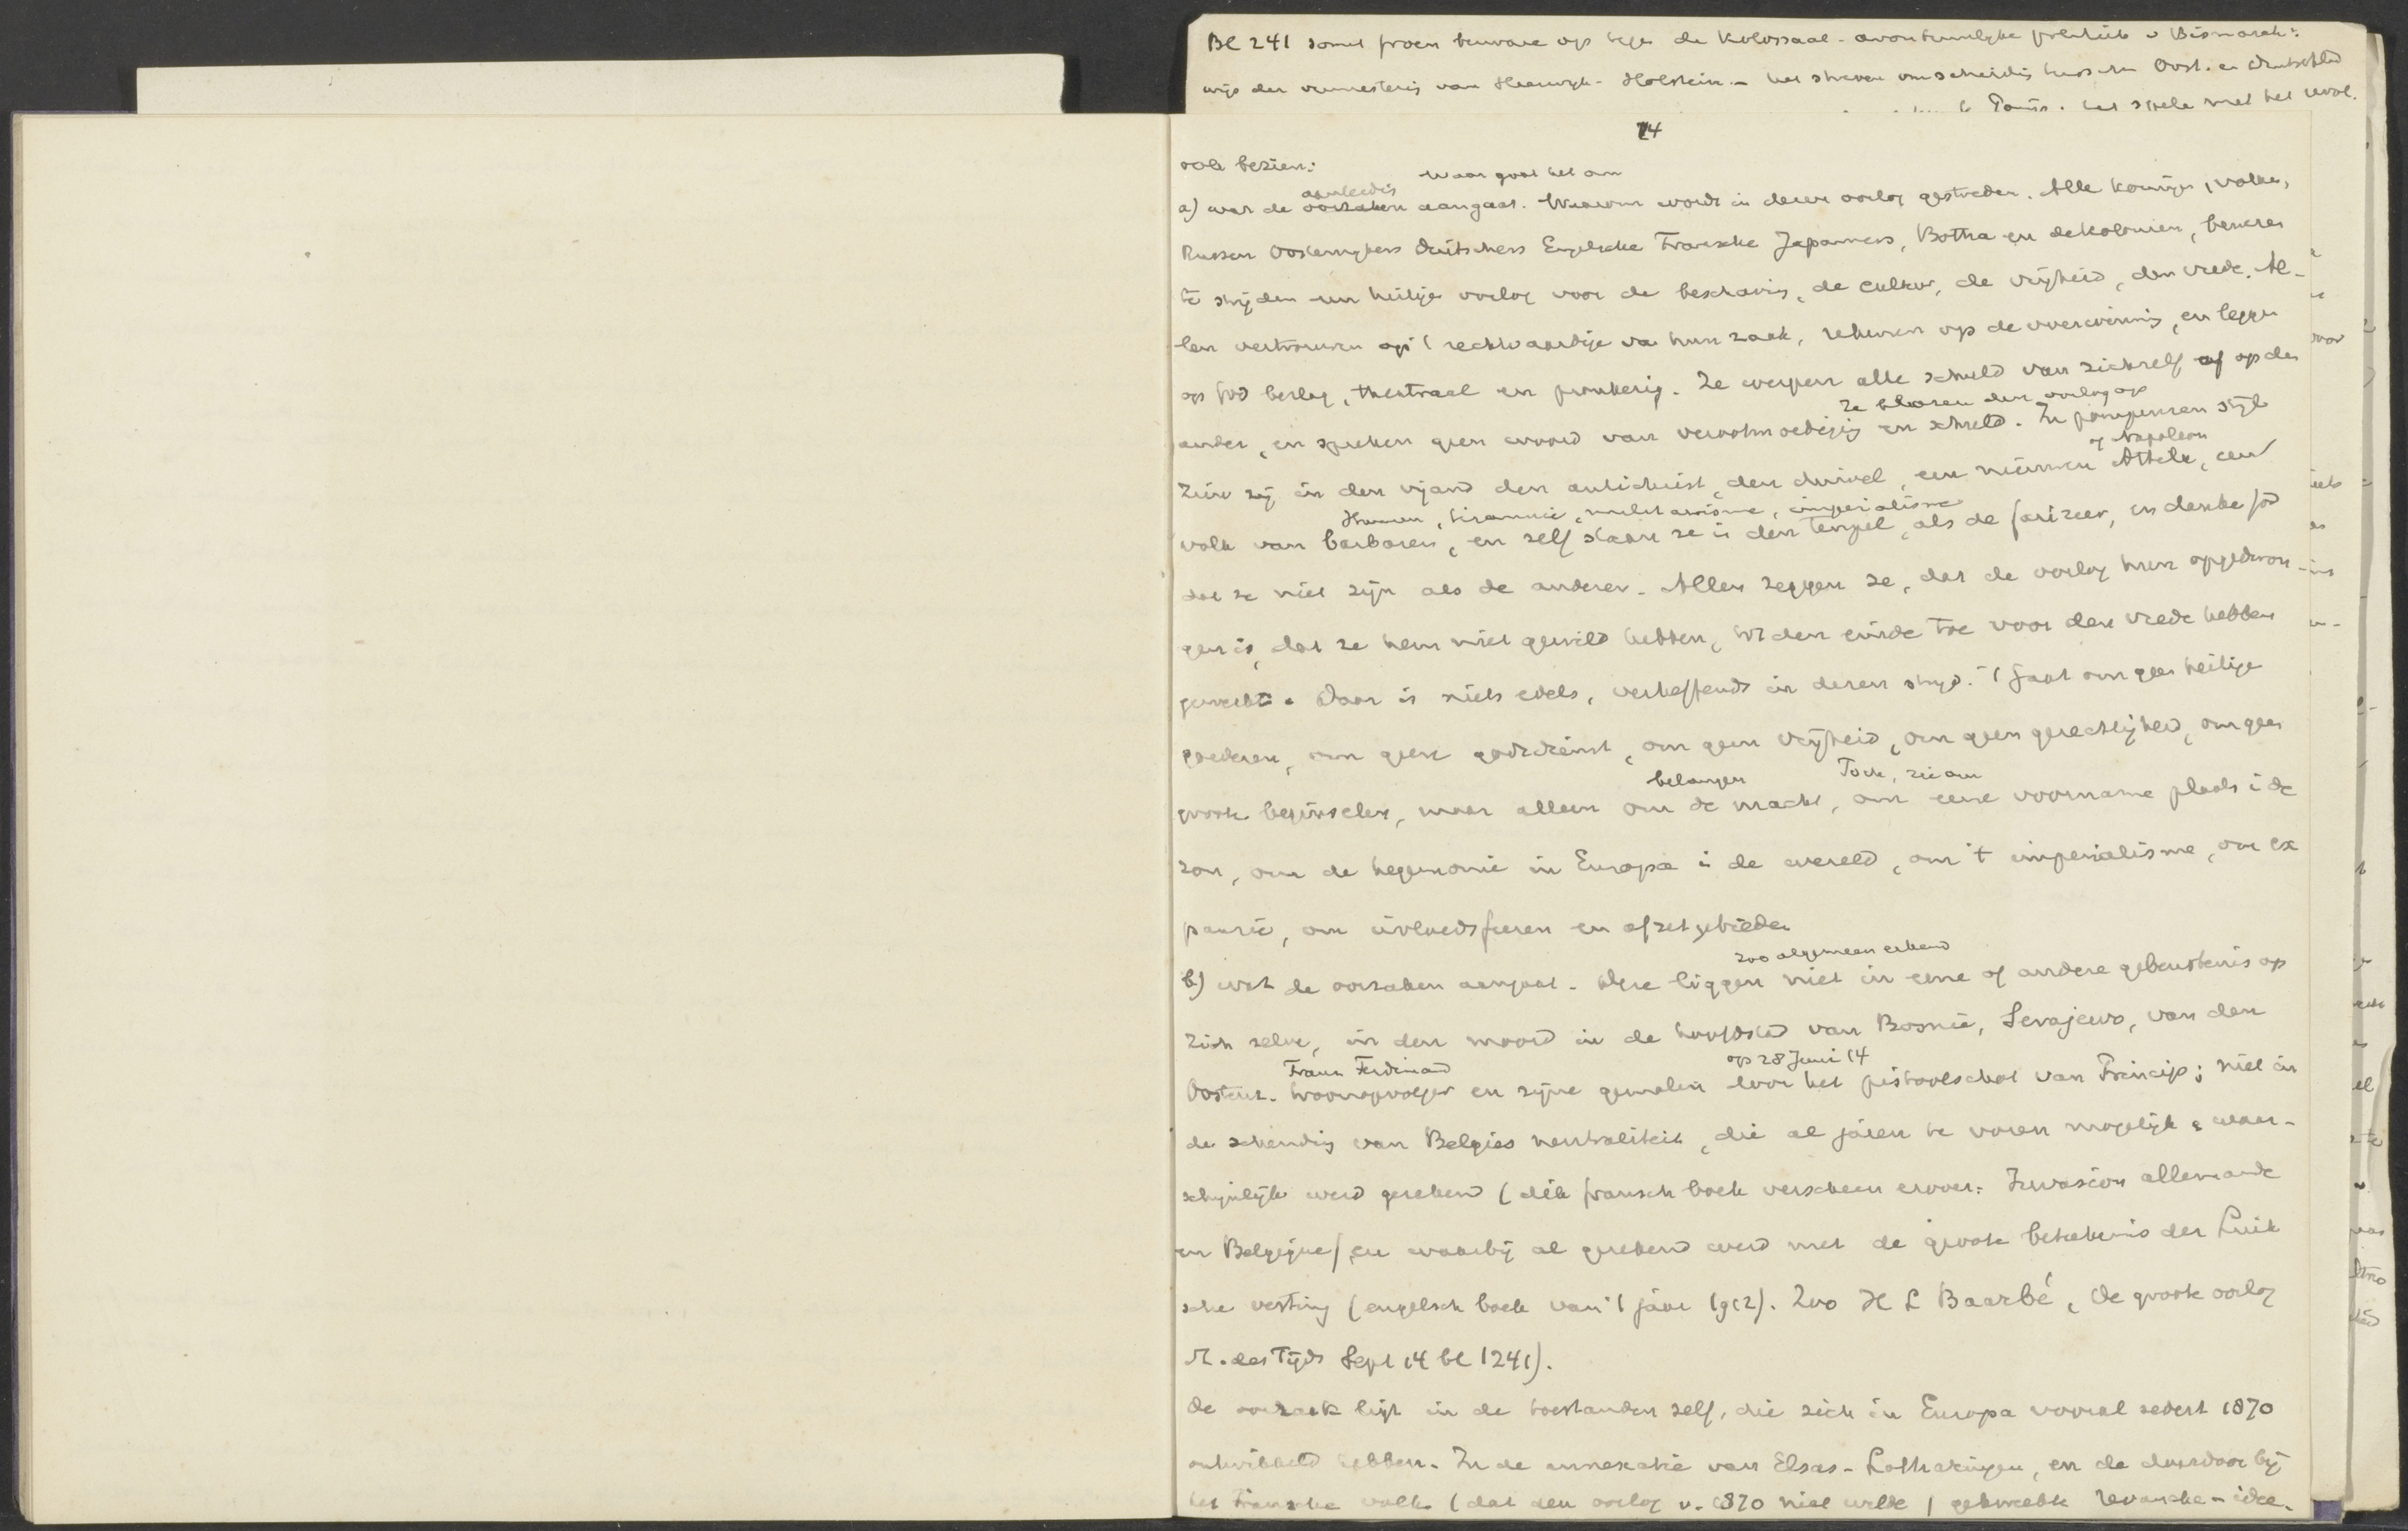 Bl 241 somt groen bezware op tege de kolossaal-avontuurlyke politiek v Bismarck:
wijs der vermestering van Sleeswyk-Holstein - het streven om scheiding tusschen Oost. en Duitschld
Parijs. het spele met het revol.
14
ook bezien:
waar gaat het om
aanleidg
a) wat de oorzaken aangaat. Waarom wordt in deze oorlog gestreden. Alle koningen, volken,
Russen Oostenrykers Duitschers Engelsche Fransche Japanners, Botha en de Kolonien, beweren
te strijden een heilige oorlog voor de beschaving, de cultuur, de vrijheid, den vrede. Al-
len vertrouwen op 't rechtvaardige van hun zaak, rekenen op de overwinning, en leggen
op God beslag, theatraal en pronkerig. Ze werpen alle schuld van zichzelf af op den
Ze blazen den oorlog op
ander, en spreken geen woord van verootmoediging en schuld. In pompeuzen stijl
of Napoleon
zien zij in den vijand den antichrist, den duivel, een nieuwen Attila, een
Hunnen, tirannie, militarisme, imperialisme
volk van barbaren, en zelf staan ze in den tempel, als de farizeer, en danke God
dat ze niet zijn als de anderen. Allen zeggen ze, dat de oorlog hun opgedron-
gen is, dat ze hem niet gewild hebben, tot den einde toe voor den vrede hebben
gewerkt. Daar is niets edels, verheffends in dezen strijd. 't Gaat om geen heilige
goederen, om geen godsdienst, om geen vrijheid, om geen gerechtigheid, om geen
belangen Toch, zie om
groote beginselen, maar alleen om de macht, om eene voorname plaats i de
zon, om de hegemonie in Europa i de wereld, om 't imperialisme, om ex
pansie, om invloedsferen en afzetgebieden
zoo algemeen erkend
b) wat de oorzaken aangaat. Deze liggen niet in eene of andere gebeurtenis op
zich zelve, in den moord in de hoofdstad van Bosnië, Serajewo, van den
Frans Ferdinand op 28 Juni 14
Oostenr. troonopvolger en zijne gemalin door het pistoolschot van Princip; niet in
de schending van Belgies neutraliteit, die al jaren te voren mogelijk & waar-
schijnlijk werd gerekend (dik fransch boek verscheen erover: Invasion allemande
en Belgique) en waarbij al gerekend werd met de groote beteekenis der Luik
sche vesting (engelsch boek van 't jaar 1912). Zoo H L Baarbé, De groote oorlog
St. des Tijds Sept 14 bl 1241).
De oorzaak ligt in de toestanden zelf, die zich in Europa vooral sedert 1870
ontwikkeld hebben. In de annexatie van Elsas-Lotharingen, en de daardoor bij
het Fransche volk (dat den oorlog v. 1870 niet wilde) gekweekte revanche-idee.